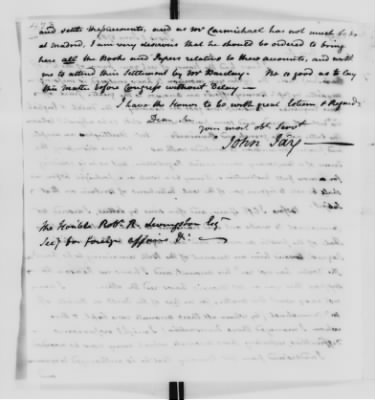 and settle these accounts, and as Mr Carmichael has not much to do
at madrid, I am very desirous that he should be ordered to bring
here all the Books and Papers relative to these accounts, and with
me to attend this Settlement by Mr Barclay. Be so good as to lay
this matter before Congress without Delay —
I have the Honor to be with great Esteem & Regard,
Dear Sir
your most obt Servt
John Jay —
The Honble Robt R. Livingston Esqr
Secy for foreign affairs &c.